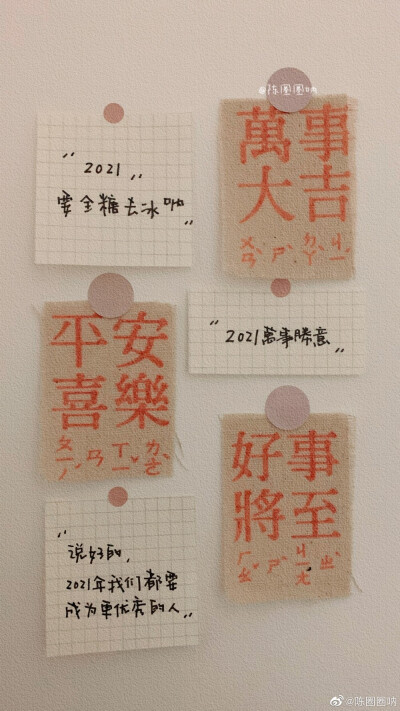 @陈圈圈呐
萬事
大吉
ㄨㄢˋ ㄕˋ ㄉㄚˋ ㄐㄧˊ
“2021”
要全糖去冰呦”
平安
喜樂
ㄆㄧㄥˊ ㄢ ㄒㄧˇ ㄌㄜˋ
“2021萬事勝意”
好事
將至
ㄏㄠˇ ㄕˋ ㄐㄧㄤ ㄓˋ
“说好的,
2021年我们都要
成为更优秀的人”
@陈圈圈呐